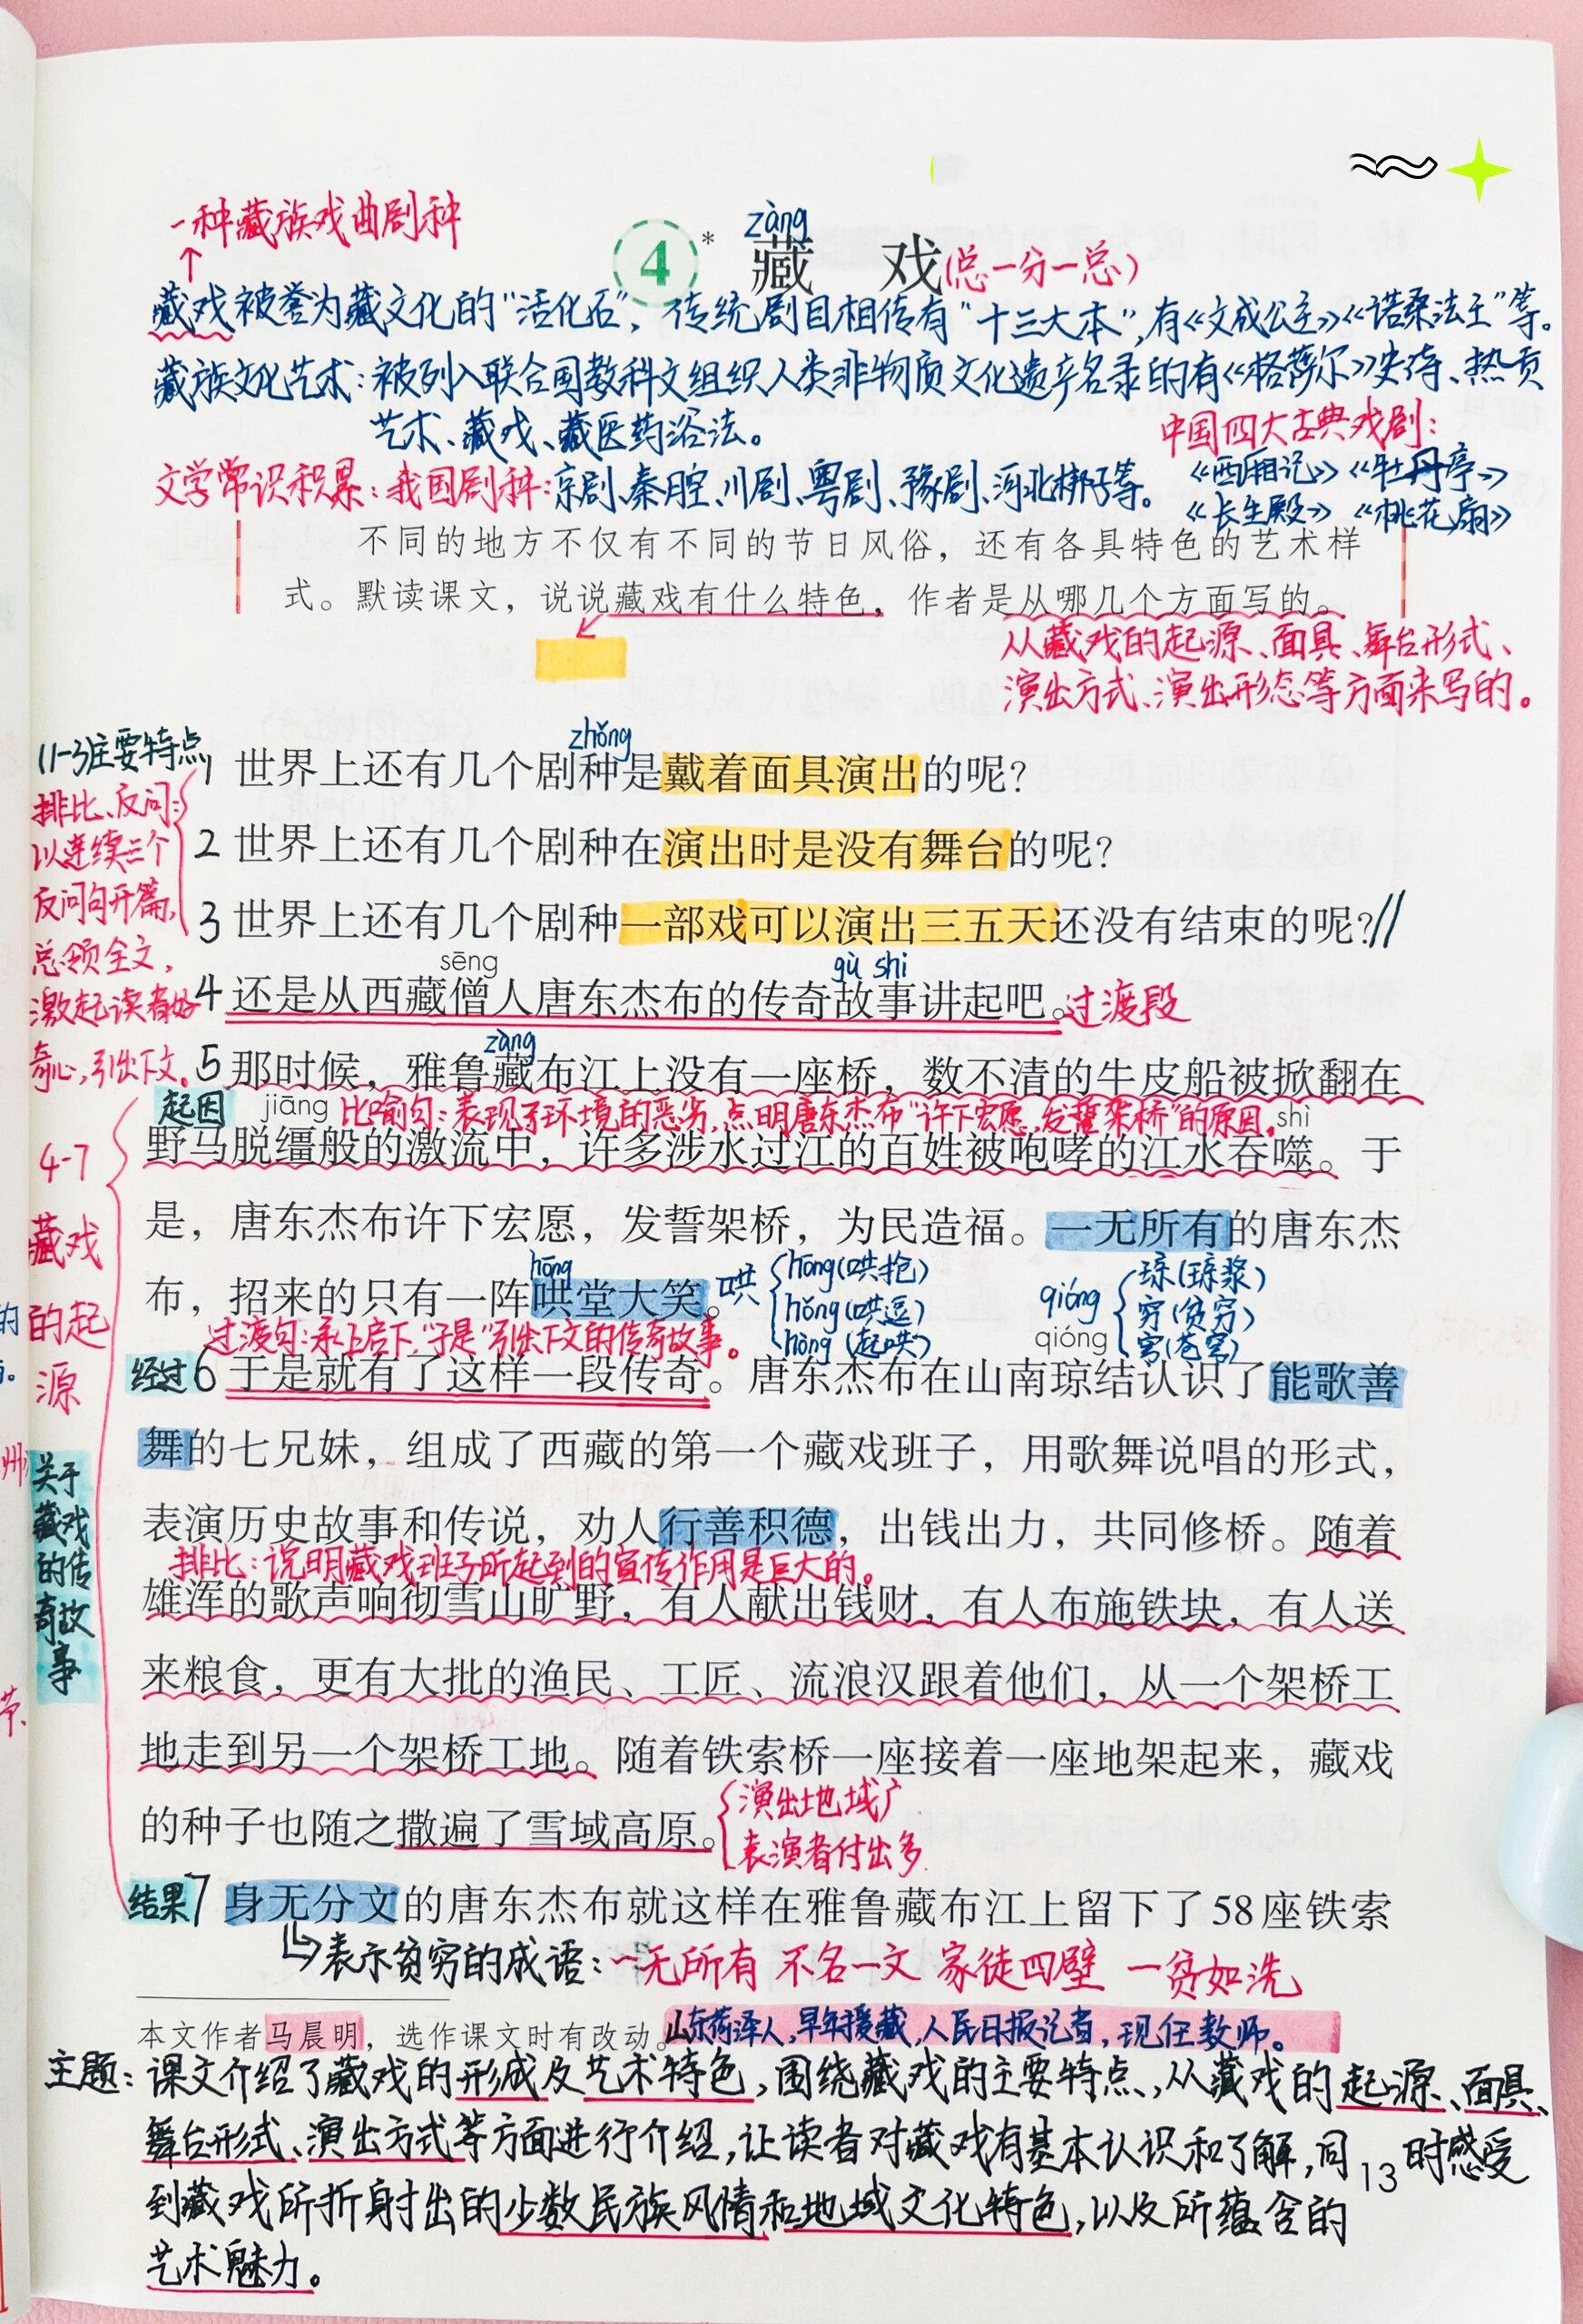 一种藏族戏曲剧种
zàng
4* 藏 戏(总一分一总)
藏戏被誉为藏文化的"活化石",传统剧目相传有"十三大本",有《文成公主》《诺桑法王"等。
藏族文化艺术:被列入联合国教科文组织人类非物质文化遗产名录的有《格萨尔》史诗、热贡
艺术、藏戏、藏医药浴法。
中国四大古典戏剧:
文学常识积累:我国剧种:京剧、秦腔、川剧、粤剧、豫剧、河北梆子等。
《西厢记》《牡丹亭》
《长生殿》《桃花扇》
不同的地方不仅有不同的节日风俗,还有各具特色的艺术样
式。默读课文,说说藏戏有什么特色,作者是从哪几个方面写的。
从藏戏的起源、面具、舞台形式、
演出方式、演出形态等方面来写的。
(1-3)主要特点
排比、反问:
以连续三个
反问句开篇,
总领全文,
激起读者好
奇心,引出下文。
zhǒng
1 世界上还有几个剧种是戴着面具演出的呢?
2 世界上还有几个剧种在演出时是没有舞台的呢?
3 世界上还有几个剧种一部戏可以演出三五天还没有结束的呢?//
sēng gù shi
4 还是从西藏僧人唐东杰布的传奇故事讲起吧。过渡段
zàng
5 那时候,雅鲁藏布江上没有一座桥,数不清的牛皮船被掀翻在
起因 jiāng 比喻句:表现了环境的恶劣,点明唐东杰布"许下宏愿,发誓架桥"的原因。shì
野马脱缰般的激流中,许多涉水过江的百姓被咆哮的江水吞噬。于
是,唐东杰布许下宏愿,发誓架桥,为民造福。一无所有的唐东杰
hōng
布,招来的只有一阵哄堂大笑。
哄
hōng(哄抢)
hǒng(哄逗)
hòng(起哄)
qióng
琼(琼浆)
穷(贫穷)
穹(苍穹)
过渡句:承上启下,"于是"引出下文的传奇故事。
qióng
经过 6 于是就有了这样一段传奇。唐东杰布在山南琼结认识了能歌善
舞的七兄妹,组成了西藏的第一个藏戏班子,用歌舞说唱的形式,
表演历史故事和传说,劝人行善积德,出钱出力,共同修桥。随着
排比:说明藏戏班子所起到的宣传作用是巨大的。
雄浑的歌声响彻雪山旷野,有人献出钱财,有人布施铁块,有人送
来粮食,更有大批的渔民、工匠、流浪汉跟着他们,从一个架桥工
地走到另一个架桥工地。随着铁索桥一座接着一座地架起来,藏戏
的种子也随之撒遍了雪域高原。
演出地域广
表演者付出多
4-7
藏戏
的起
源
关于
藏戏
的传
奇故
事
结果 7 身无分文的唐东杰布就这样在雅鲁藏布江上留下了58座铁索
表示贫穷的成语:一无所有 不名一文 家徒四壁 一贫如洗
本文作者马晨明,选作课文时有改动。山东菏泽人,早年援藏,人民日报记者,现任教师。
主题:课文介绍了藏戏的形成及艺术特色,围绕藏戏的主要特点,从藏戏的起源、面具、
舞台形式、演出方式等方面进行介绍,让读者对藏戏有基本认识和了解,同时感受
13
到藏戏所折射出的少数民族风情和地域文化特色,以及所蕴含的
艺术魅力。